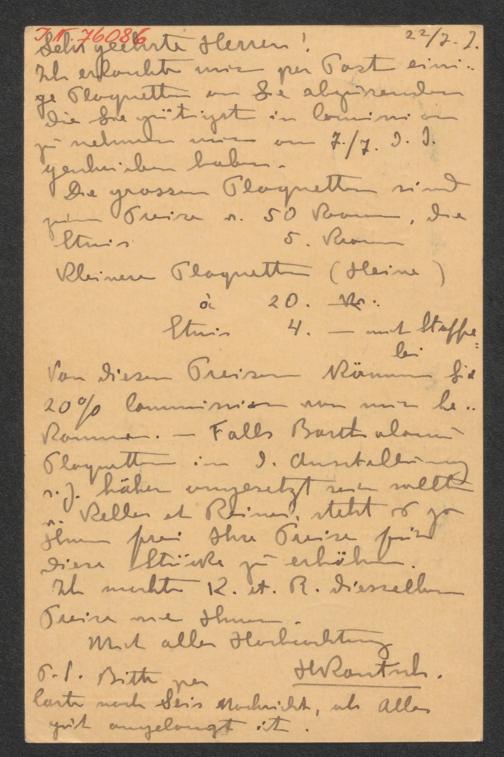 I.N. 76086
22/7. J.
Sehr geehrte Herren!
Ich erlaubte mir per Post eini-
ge Plaquetten an Sie abzusenden
die Sie gütigst in Comission
zu nehmen mir am 7./7. d. J.
geschrieben haben.
Die grossen Plaquetten sind
zum Preise v. 50 Kronen, die
Etuis 5. Kronen
Kleinere Plaquetten (Heine)
à 20. Kr.
Etuis 4. — mit Staffe
lei
Von diesen Preisen können Sie
20% Commission von mir be-
kommen. — Falls
Plaquetten in d. Ausstellung
höher angesetzt sein sollten
Keller et Reiner, steht es ja
Ihnen frei Ihre Preise für
diese Stücke zu erhöhen.
Ich machte K. et. R. dieselben
Preise wie Ihnen.
Mit aller Hochachtung
HKautsch.
P.S. Bitte per
Carte nach Seis Nachricht, ob Alles
gut angelangt ist.